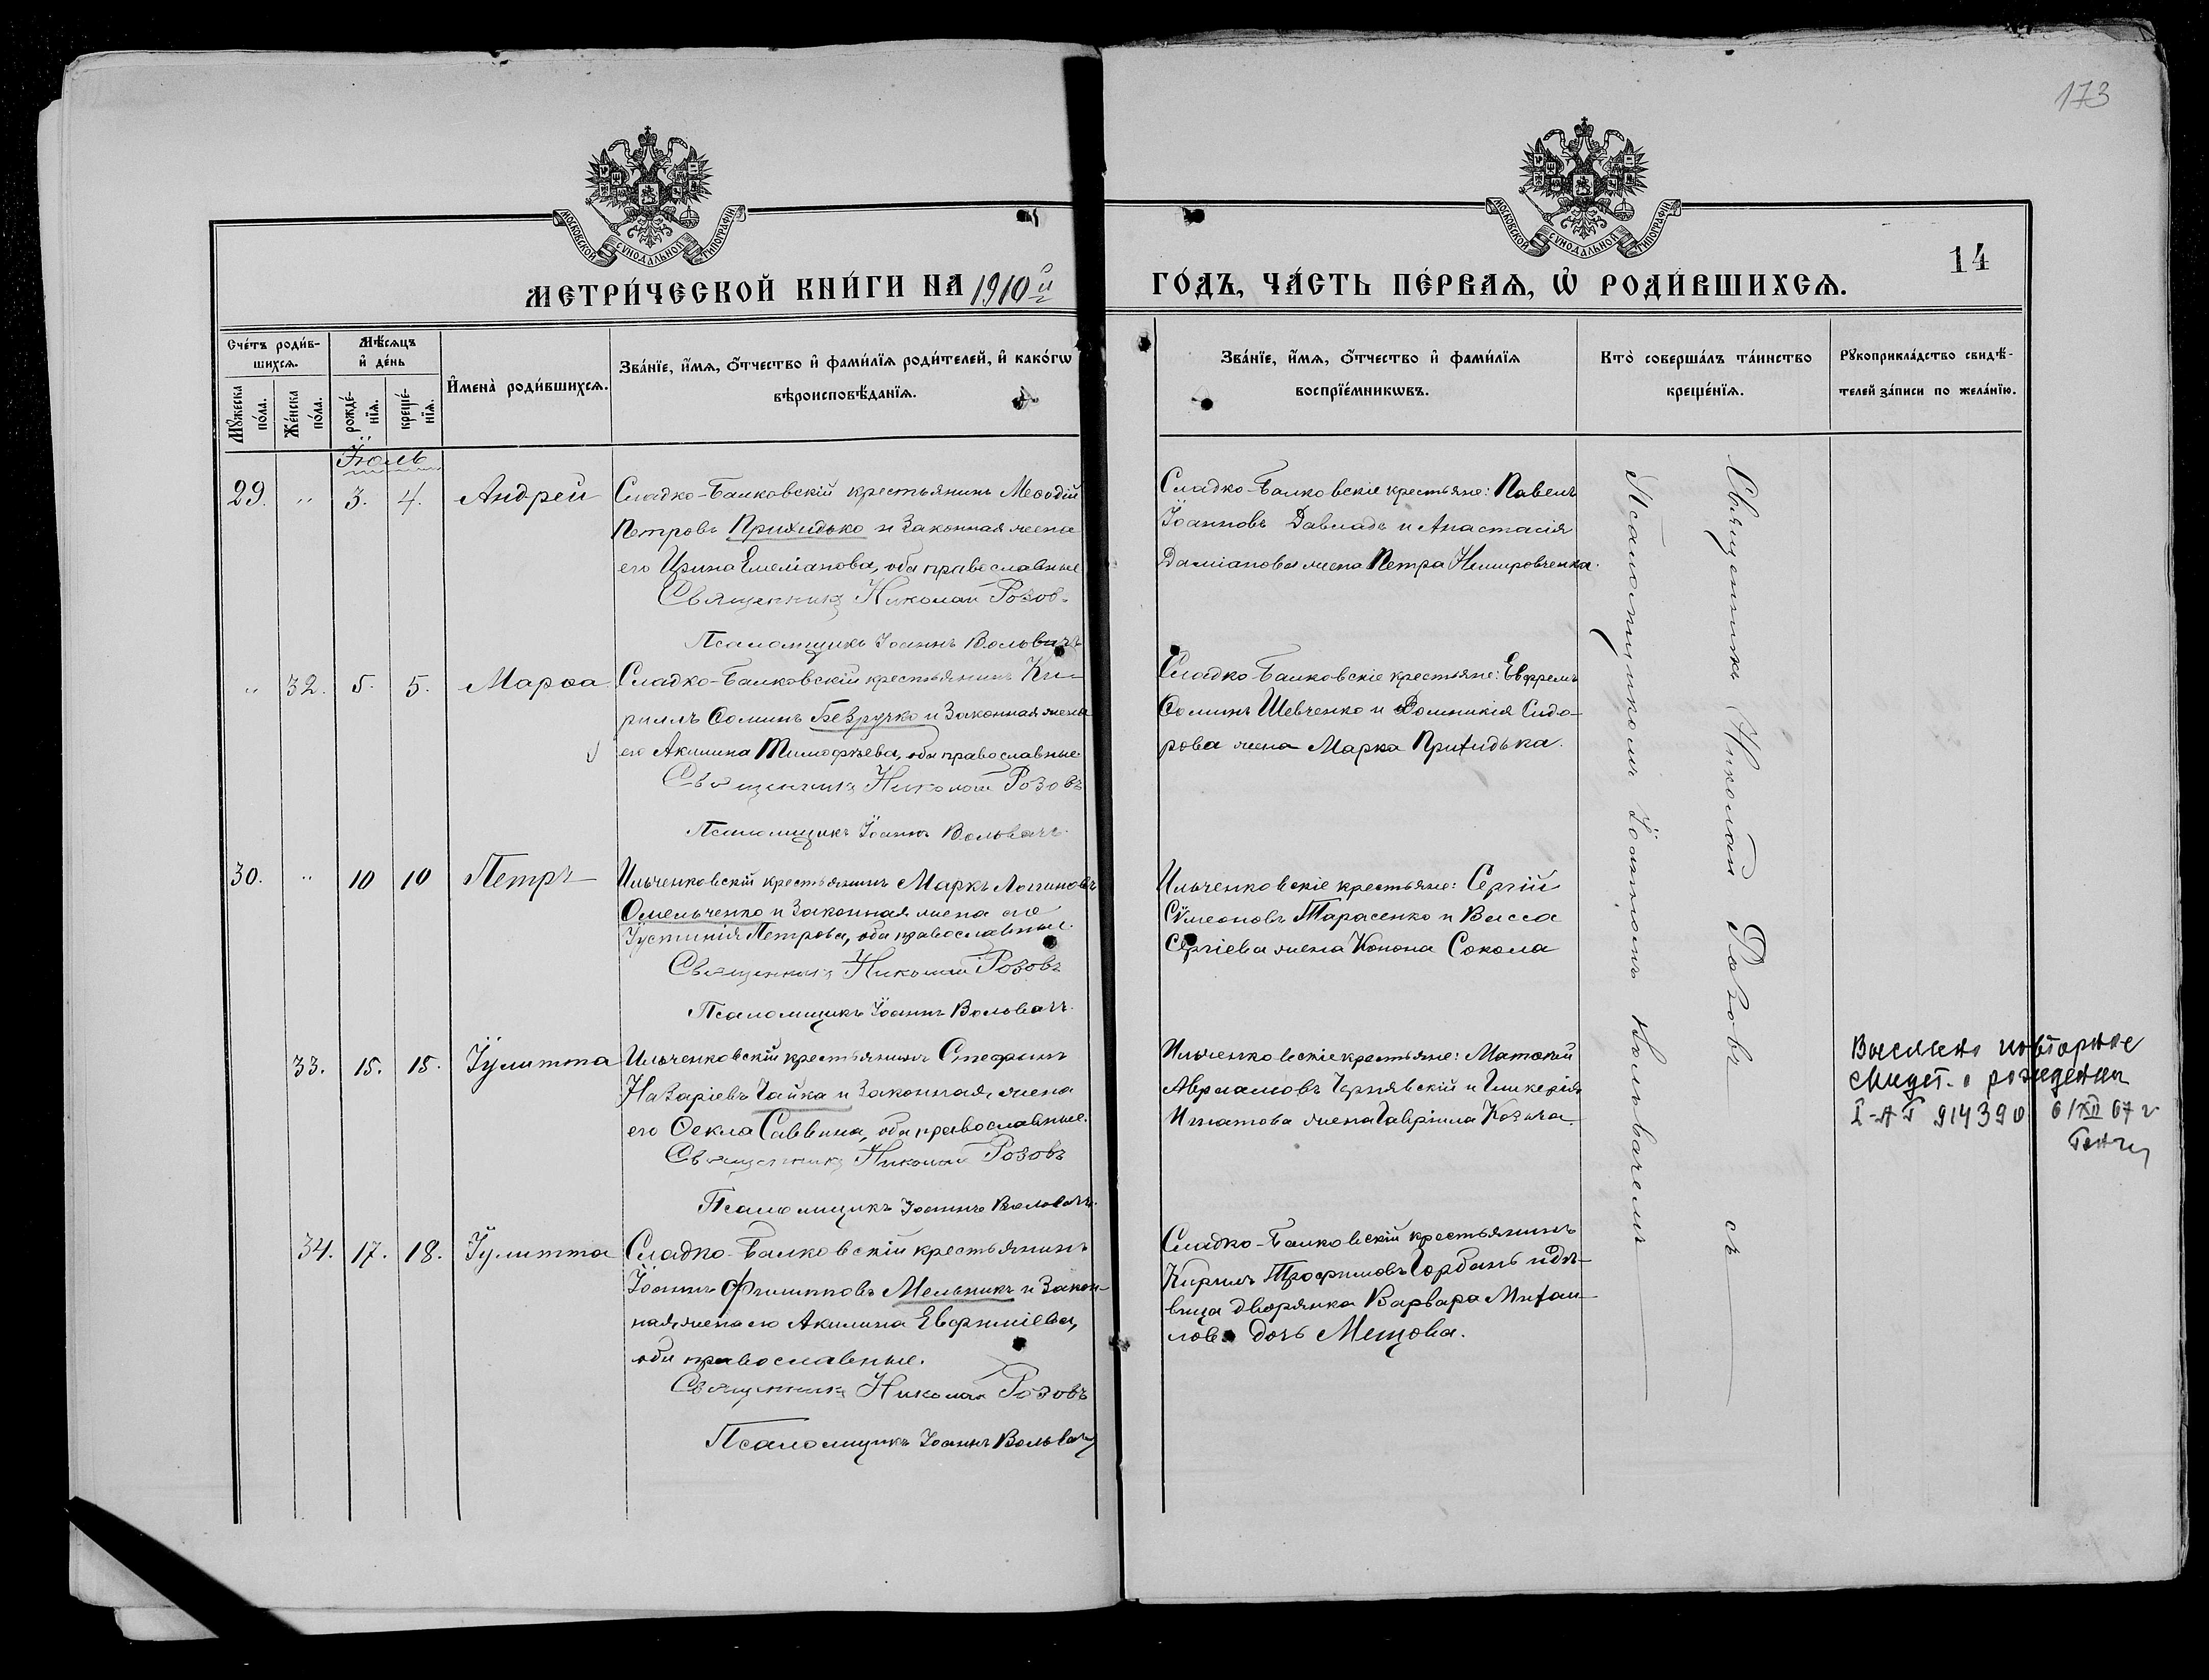 173
МОСКОВСКОЙ СѴНОДАЛЬНОЙ ТИПОГРАФІИ
МОСКОВСКОЙ СѴНОДАЛЬНОЙ ТИПОГРАФІИ
14
МЕТРИ́ЧЕСКОЙ КНИ́ГИ НА 1910й ГО́ДЪ, ЧА́СТЬ ПЕ́РВАѦ, Ѿ РОДИ́ВШИХСѦ.
Сче́тъ роди́в-
шихсѧ.
Мꙋ́жеска по́ла.
Же́нска по́ла.
Мѣ́сѧцъ и҆ де́нь
рожде́-нїѧ.
креще́-нїѧ.
И҆мена̀ роди́вшихсѧ.
Зва́нїе, и҆́мѧ, ѻ҆́тчество и҆ фами́лїѧ роди́телей, и҆ како́гѡ
вѣроисповѣ́данїѧ.
Зва́нїе, и҆́мѧ, ѻ҆́тчество и҆ фами́лїѧ
воспрїе́мникѡвъ.
Кто̀ соверша́лъ та́инство
креще́нїѧ.
Рꙋкоприкла́дство свидѣ́-
телей за́писи по жела́нїю.
Іюль
29. " 3. 4. Андрей
Сладко-Балковскій крестьянинъ Меѳодій
Петровъ Прихидько и законная жена
его Ирина Емеліанова, оба православные
Священникъ Николай Розовъ
Псаломщикъ Іоаннъ Вольвачъ
Сладко-Балковскіе крестьяне: Павелъ
Іоанновъ Давладъ и Анастасія
Даміанова жена Петра Немировченка.
" 32. 5. 5. Марѳа
Сладко-Балковскій крестьянинъ Ки-
риллъ Ѳоминъ Безручко и законная жена
его Акилина Тимофѣева, оба православные
Священникъ Николай Розовъ
Псаломщикъ Іоаннъ Вольвачъ.
Сладко-Балковскіе крестьяне: Евфремъ
Ѳоминъ Шевченко и Домникія Сидо-
рова жена Марка Прихидька.
30. " 10 10 Петръ
Ильченковскій крестьянинъ Маркъ Логиновъ
Омельченко и законная жена его
Іустинія Петрова, оба православные.
Священникъ Николай Розовъ
Псаломщикъ Іоаннъ Вольвачъ.
Ильченковскіе крестьяне: Сергій
Сѵмеоновъ Тарасенко и Васса
Сергіева жена Конона Сокола
33. 15. 15. Іулитта
Ильченковскій крестьянинъ Стефанъ
Назаріевъ Чайка и законная жена
его Ѳекла Саввина, оба православные.
Священникъ Николай Розовъ
Псаломщикъ Іоаннъ Вольвачъ.
Ильченковскіе крестьяне: Матѳей
Авраамовъ Чернявскій и Гликерія
Игнатова жена Гавріила Козыча.
Выслано повторное
свидет. о рождении
I-АГ 914390 6/XII 67 г
34. 17. 18. Іулитта
Сладко-Балковскій крестьянинъ
Іоаннъ Филипповъ Мельникъ и закон-
ная жена его Акилина Евфиміева,
оба православные.
Священникъ Николай Розовъ
Псаломщикъ Іоаннъ Вольвачъ
Сладко-Балковскій крестьянинъ
Кириллъ Трофимовъ Горбань и дѣ-
вица дворянка Варвара Михаи-
лова дочь Мецова.
Священникъ Николай Розовъ съ
Псаломщикомъ Іоанномъ Вольвачемъ